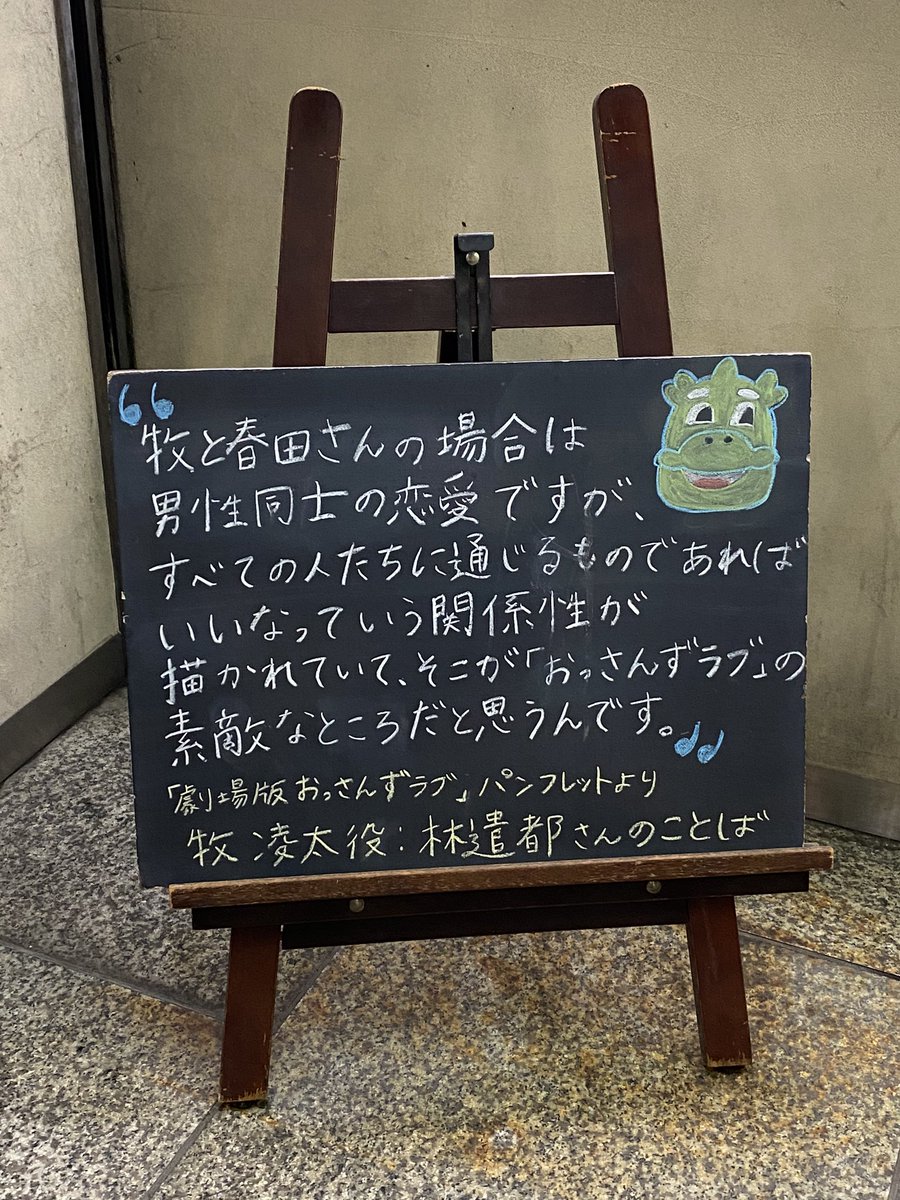 “
牧と春田さんの場合は
男性同士の恋愛ですが、
すべての人たちに通じるものであれば
いいなっていう関係性が
描かれていて、そこが「おっさんずラブ」の
素敵なところだと思うんです。”
「劇場版おっさんずラブ」パンフレットより
牧凌太役:林遣都さんのことば